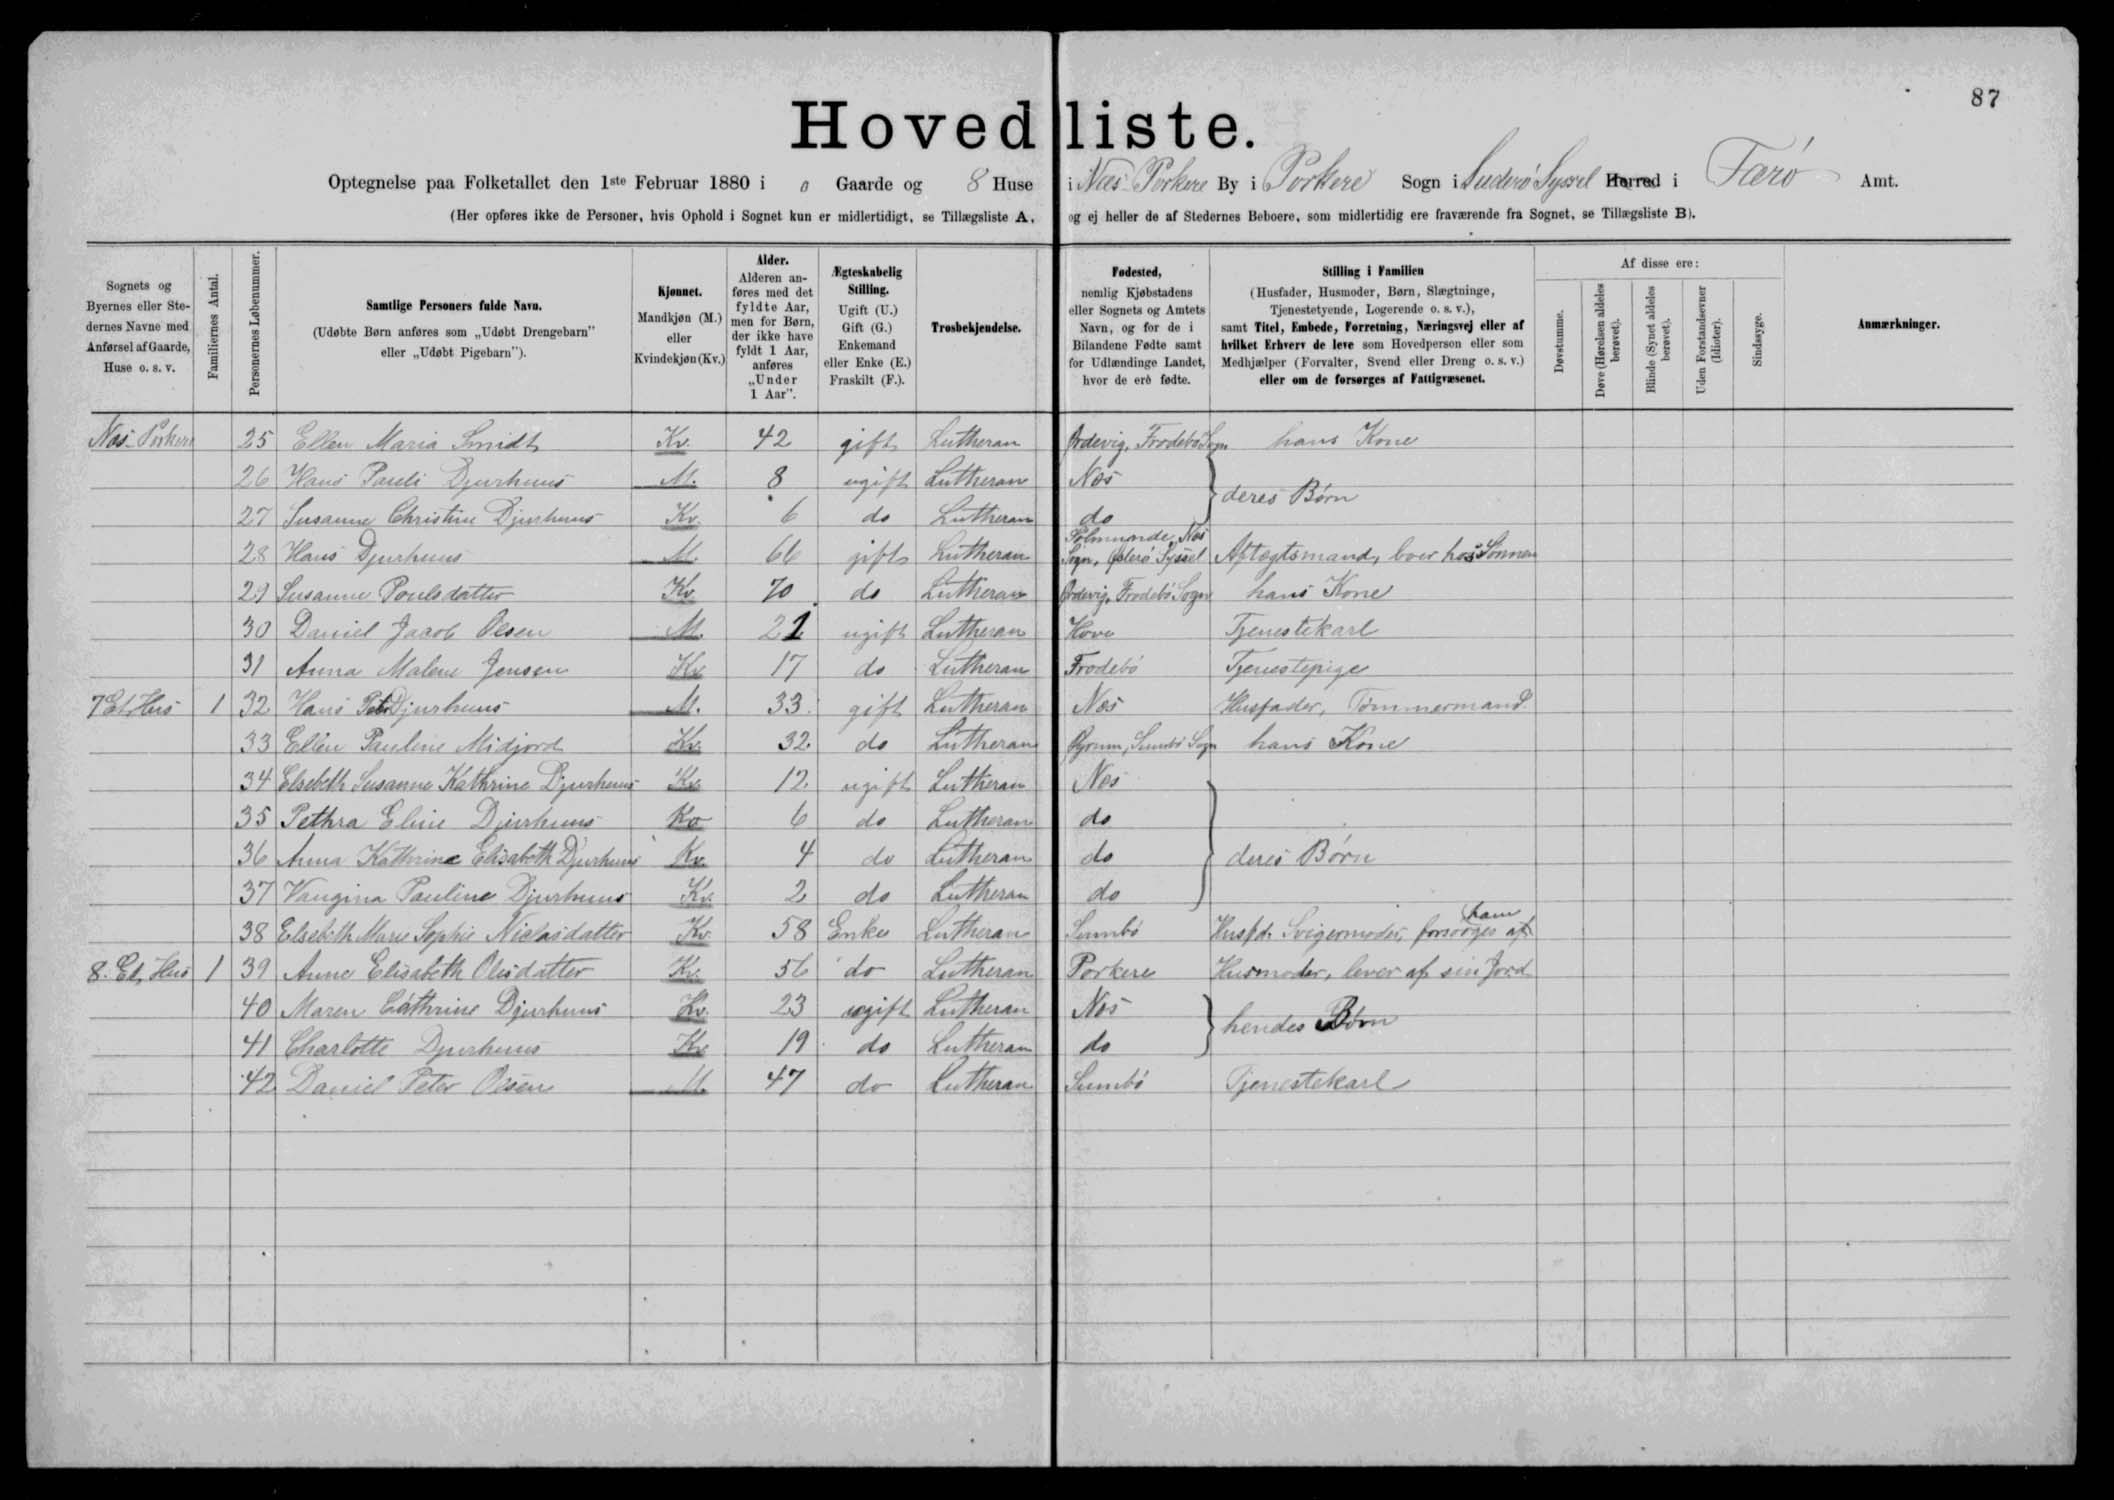 87
Hovedliste.
Optegnelse paa Folketallet den 1ste Februar 1880 i 0 Gaarde og 8 Huse i Næs Porkere By i Porkere Sogn i Suderø Syssel Herred i Færø Amt.
(Her opføres ikke de Personer, hvis Ophold i Sognet kun er midlertidigt, se Tillægsliste A, og ej heller de af Stedernes Beboere, som midlertidig ere fraværende fra Sognet, se Tillægsliste B).
Sognets og Byernes eller Stedernes Navne med Anførsel af Gaarde, Huse o. s. v.
Familiernes Antal.
Personernes Løbenummer.
Samtlige Personers fulde Navn.
(Udøbte Børn anføres som „Udøbt Drengebarn” eller „Udøbt Pigebarn”).
Kjønnet.
Mandkjøn (M.) eller Kvindekjøn (Kv.)
Alder.
Alderen anføres med det fyldte Aar, men for Børn, der ikke have fyldt 1 Aar, anføres „Under 1 Aar”.
Ægteskabelig Stilling.
Ugift (U.) Gift (G.) Enkemand eller Enke (E.) Fraskilt (F.).
Trosbekjendelse.
Fødested,
nemlig Kjøbstadens eller Sognets og Amtets Navn, og for de i Bilandene Fødte samt for Udlændinge Landet, hvor de ere fødte.
Stilling i Familien
(Husfader, Husmoder, Børn, Slægtninge, Tjenestetyende, Logerende o. s. v.), samt Titel, Embede, Forretning, Næringsvej eller af hvilket Erhverv de leve som Hovedperson eller som Medhjælper (Forvalter, Svend eller Dreng o. s. v.) eller om de forsørges af Fattigvæsenet.
Af disse ere:
Døvstumme.
Døve (Hørelsen aldeles berøvet).
Blinde (Synet aldeles berøvet).
Uden Forstandsevner (Idioter).
Sindssyge.
Anmærkninger.
Næs Porkere 25 Ellen Maria Smidt Kv. 42 gift Lutheran Ørdevig, Frodebø Sogn hans Kone
26 Hans Pauli Djurhuus M. 8 ugift Lutheran Næs
deres Børn
27 Susanne Christine Djurhuus Kv. 6 do Lutheran do
28 Hans Djurhuus M. 66 gift Lutheran Sølmunde, Næs Sogn, Østerø Syssel Aftægtsmand, boer hos Sønnen
29 Susanne Poulsdatter Kv. 70 do Lutheran Ørdevig, Frodebø Sogn hans Kone
30 Daniel Jacob Olsen M. 21 ugift Lutheran Hove Tjenestekarl
31 Anna Malene Jensen Kv. 17 do Lutheran Frodebø Tjenestepige
7 Et Hus 1 32 Hans Peter Djurhuus M. 33 gift Lutheran Næs Husfader, Tømmermand.
33 Ellen Pauline Midjord Kv. 32 do Lutheran Øyrum, Sumbø Sogn hans Kone
34 Elsebeth Susanne Kathrine Djurhuus Kv. 12 ugift Lutheran Næs
35 Pethra Eline Djurhuus Kv 6 do Lutheran do
36 Anna Kathrine Elisabeth Djurhuus Kv. 4 do Lutheran do deres Børn
37 Vangina Pauline Djurhuus Kv. 2 do Lutheran do
38 Elsebeth Marie Sophie Niclasdatter Kv. 58 Enke Lutheran Sumbø Husfd. Svigermoder, forsørges af ham
8. Et Hus 1 39 Anne Elisabeth Olesdatter Kv. 56 do Lutheran Porkere Husmoder, lever af sin Jord
40 Maren Cathrine Djurhuus Kv. 23 ugift Lutheran Næs
hendes Børn
41 Charlotte Djurhuus Kv 19 do Lutheran do
42 Daniel Peter Olsen M. 47 do Lutheran Sumbø Tjenestekarl